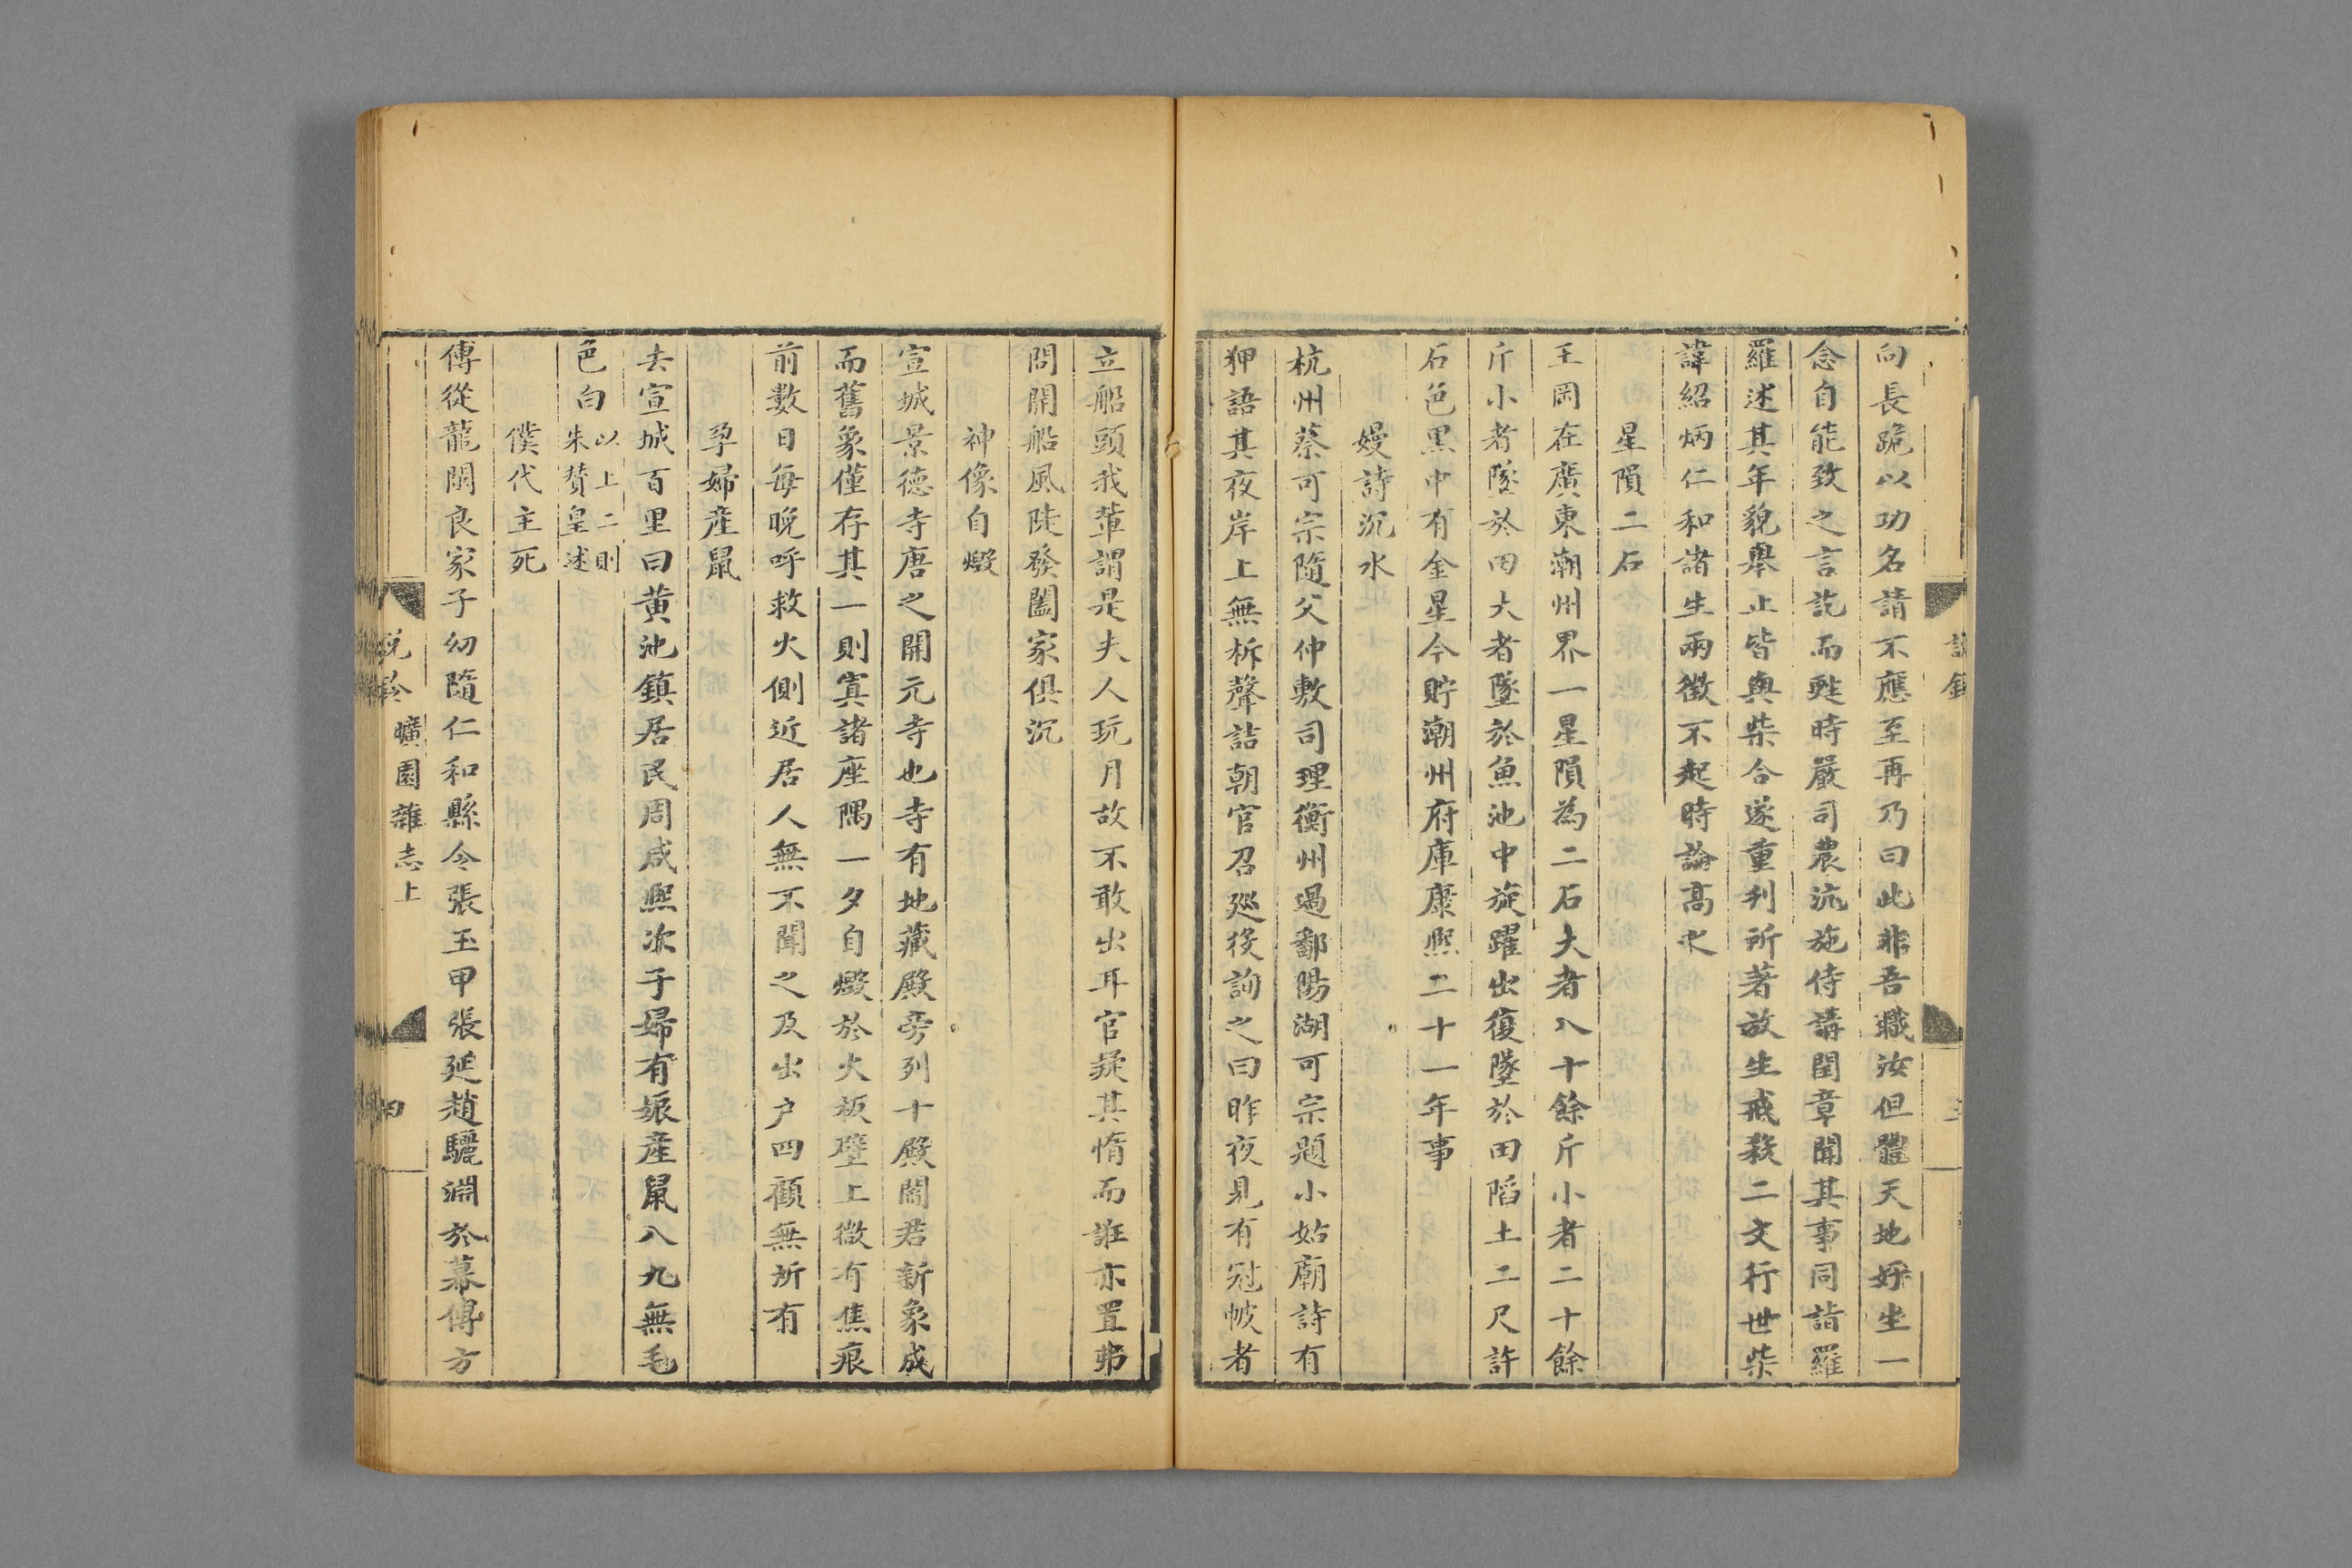 向長跪以功名請不應至再乃曰此非吾職汝但體天地好生一
念自能致之言訖而甦時嚴司農沆施侍講閏章聞其事同詣羅
羅述其年貌舉止皆與柴合遂重刋所著放生戒殺二文行世柴
諱紹炳仁和諸生兩徵不起時論高之
星隕二石
王岡在廣東潮州界一星隕為二石大者八十餘斤小者二十餘
斤小者墜於田大者墜於魚池中旋躍出復墜於田陷土二尺許
石色黑中有金星今貯潮州府庫康熙二十一年事
嫚詩沉水
杭州蔡可宗隨父仲敷司理衡州過鄱陽湖可宗題小姑廟詩有
狎語其夜岸上無柝聲詰朝官召廵役詢之曰昨夜見有冠帔者
立船頭我輩謂是夫人玩月故不敢出耳官疑其惰而誑亦置弗
問開船風陡發闔家俱沉
神像自燬
宣城景德寺唐之開元寺也寺有地藏殿旁列十殿閻君新象成
而舊象僅存其一則寘諸座隅一夕自燬於火板壁上微有焦痕
前數日每晚呼救火側近居人無不聞之及出户四顧無所有
孕婦產鼠
去宣城百里曰黄池鎮居民周咸熙次子婦有娠產鼠八九無毛
色白以上二則朱贊皇述
僕代主死
傅從龍閩良家子幼隨仁和縣令張玉甲張延趙驪淵於幕傅方
說鈴 曠園雜志上 四